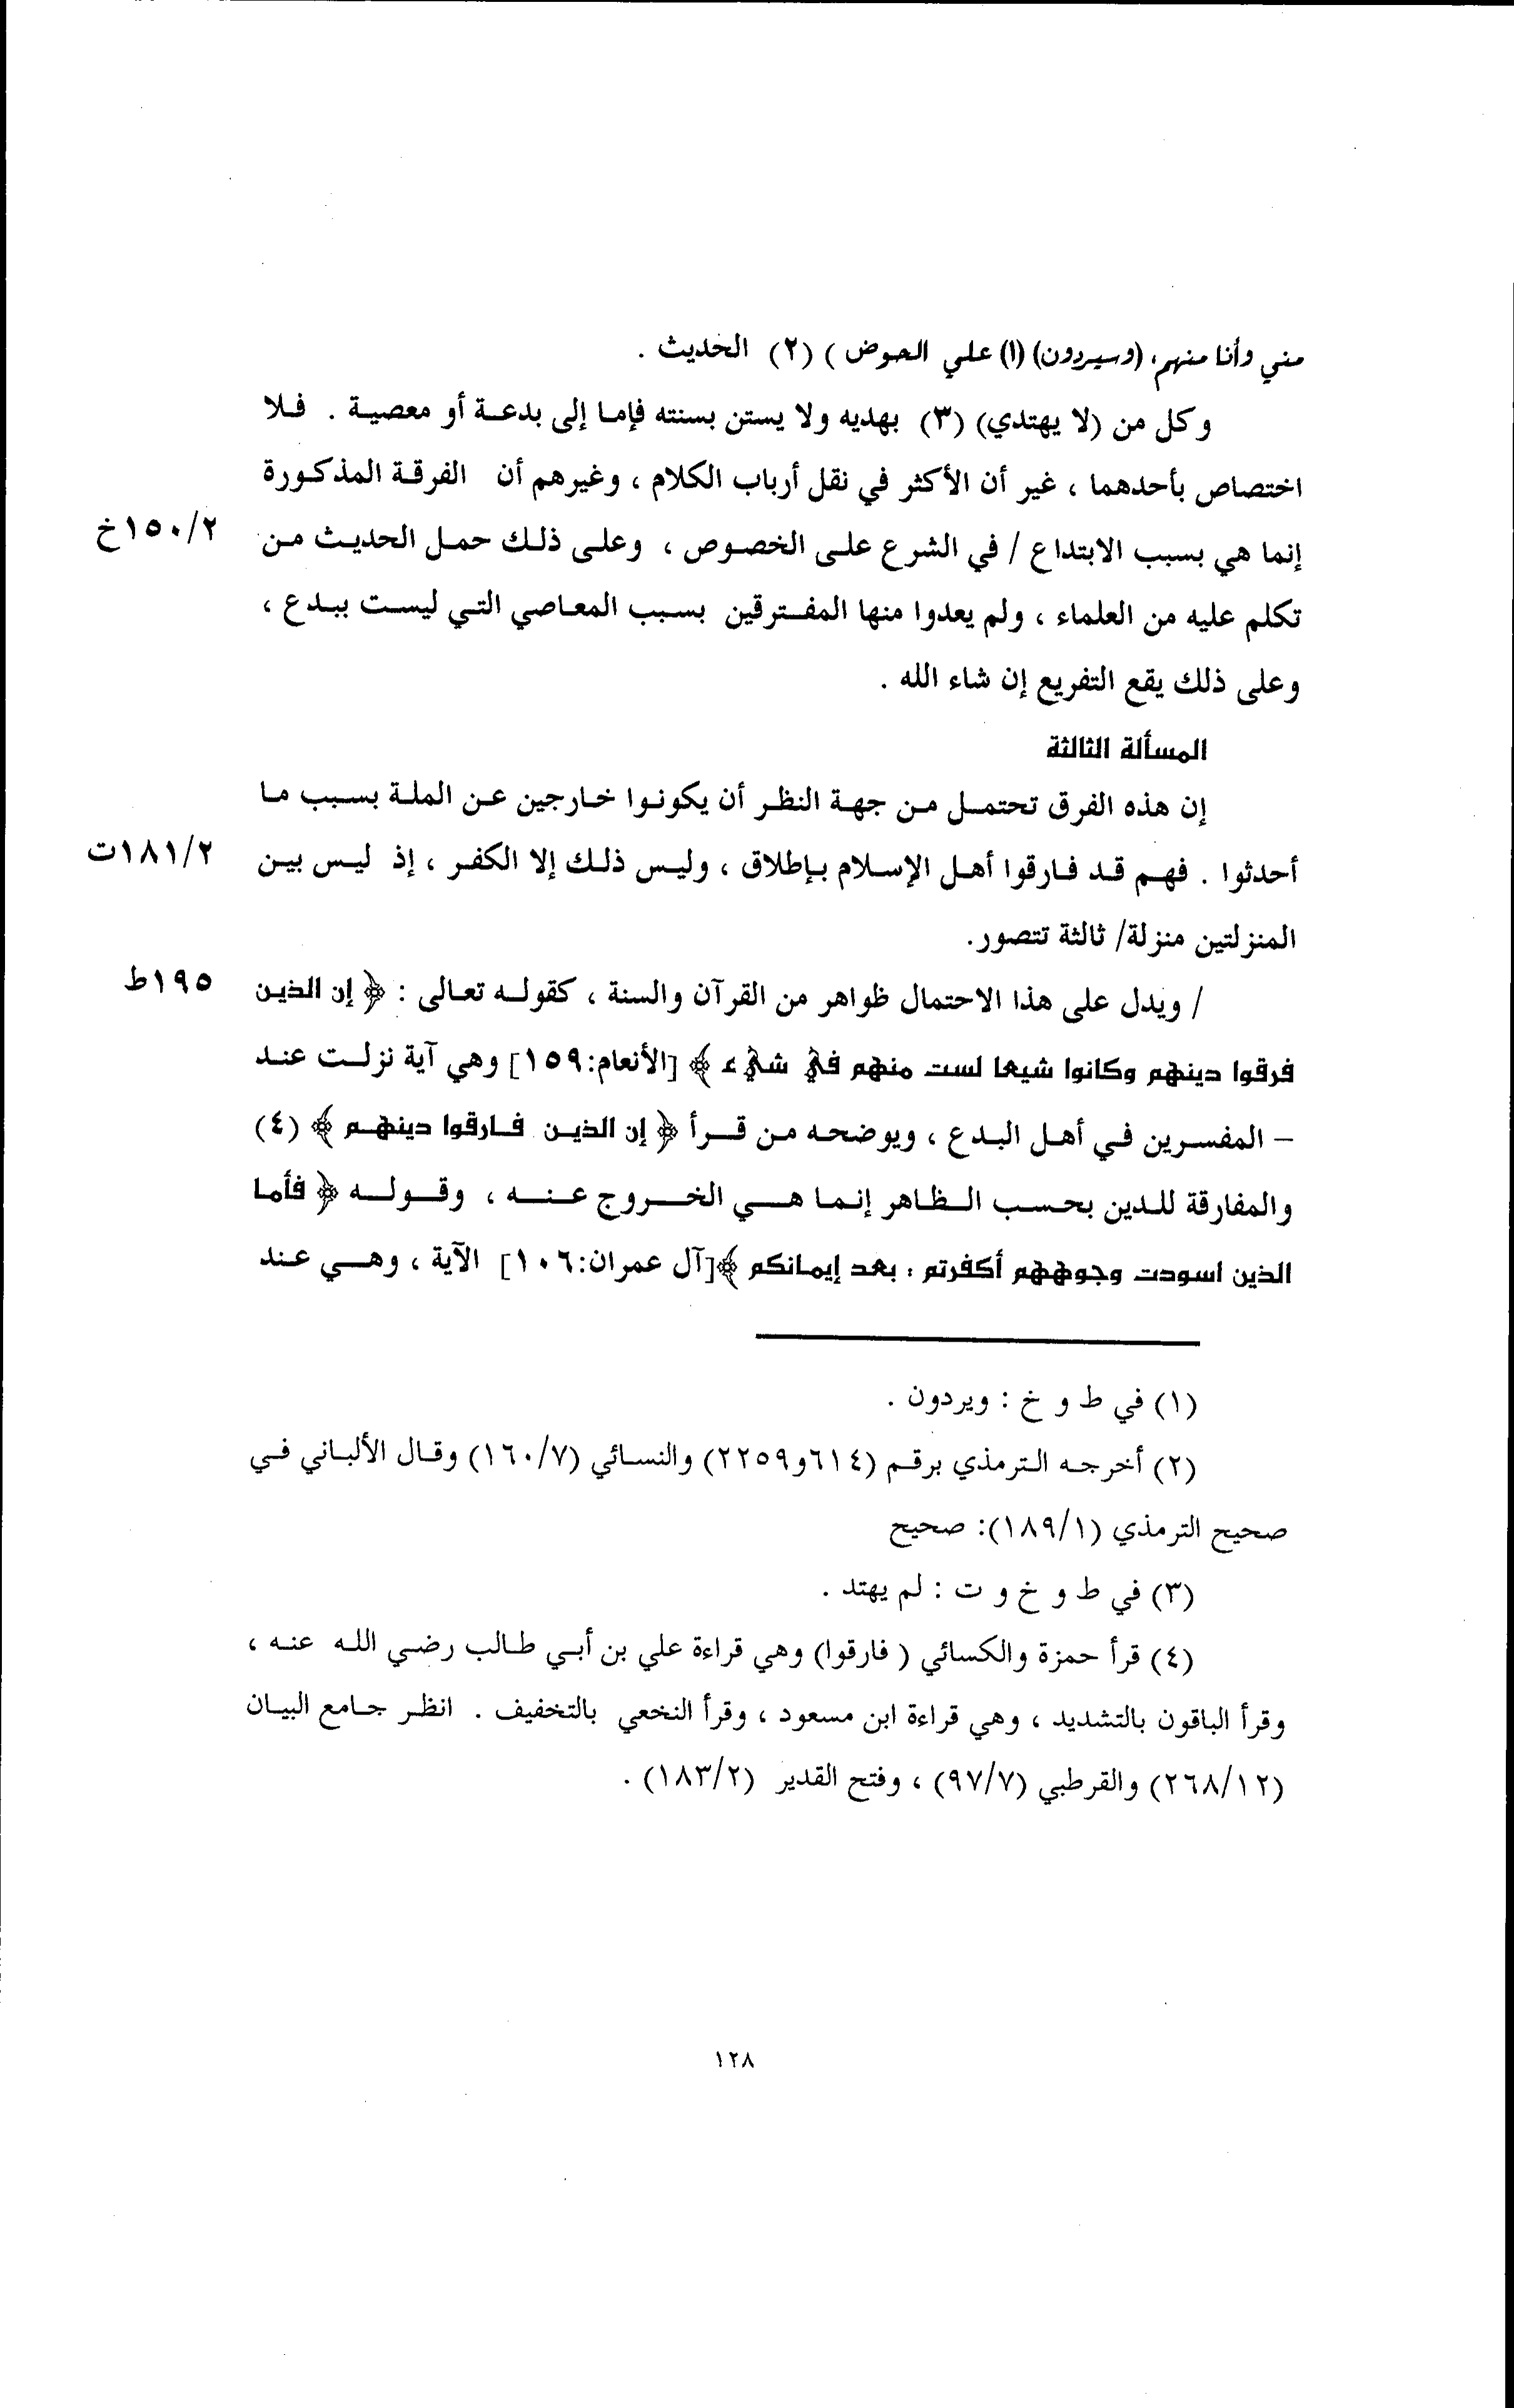 مني وأنا منهم، (وسيردون) (١) علي الحوض ) (٢) الحديث .
وكل من (لا يهتدي) (٣) بهديه ولا يستن بسنته فإما إلى بدعة أو معصية . فلا
اختصاص بأحدهما ، غير أن الأكثر في نقل أرباب الكلام ، وغيرهم أن الفرقة المذكورة
إنما هي بسبب الابتداع / في الشرع على الخصوص ، وعلى ذلك حمل الحديث من ١٥٠/٢خ
تكلم عليه من العلماء ، ولم يعدوا منها المفترقين بسبب المعاصي التي ليست ببدع ،
وعلى ذلك يقع التفريع إن شاء الله .
المسألة الثالثة
إن هذه الفرق تحتمل من جهة النظر أن يكونوا خارجين عن الملة بسبب ما
أحدثوا . فهم قد فارقوا أهل الإسلام بإطلاق ، وليس ذلك إلا الكفر ، إذ ليس بين ١٨١/٢ت
المنزلتين منزلة/ ثالثة تتصور.
/ ويدل على هذا الاحتمال ظواهر من القرآن والسنة ، كقوله تعالى : ﴿ إن الذين ١٩٥ط
فرقوا دينهم وكانوا شيعا لست منهم في شيء ﴾ [الأنعام:١٥٩] وهي آية نزلت عند
– المفسرين في أهل البدع ، ويوضحه من قرأ ﴿ إن الذين فارقوا دينهم ﴾ (٤)
والمفارقة للدين بحسب الظاهر إنما هي الخروج عنه ، وقوله ﴿ فأما
الذين اسودت وجوههم أكفرتم ، بعد إيمانكم ﴾[آل عمران:١٠٦] الآية ، وهي عند
(١) في ط و خ : ويردون .
(٢) أخرجه الترمذي برقم (٦١٤و٢٢٥٩) والنسائي (١٦٠/٧) وقال الألباني في
صحيح الترمذي (١٨٩/١): صحيح
(٣) في ط و خ و ت : لم يهتد .
(٤) قرأ حمزة والكسائي ( فارقوا) وهي قراءة علي بن أبي طالب رضي الله عنه ،
وقرأ الباقون بالتشديد ، وهي قراءة ابن مسعود ، وقرأ النخعي بالتخفيف . انظر جامع البيان
(٢٦٨/١٢) والقرطبي (٩٧/٧) ، وفتح القدير (١٨٣/٢) .
١٢٨